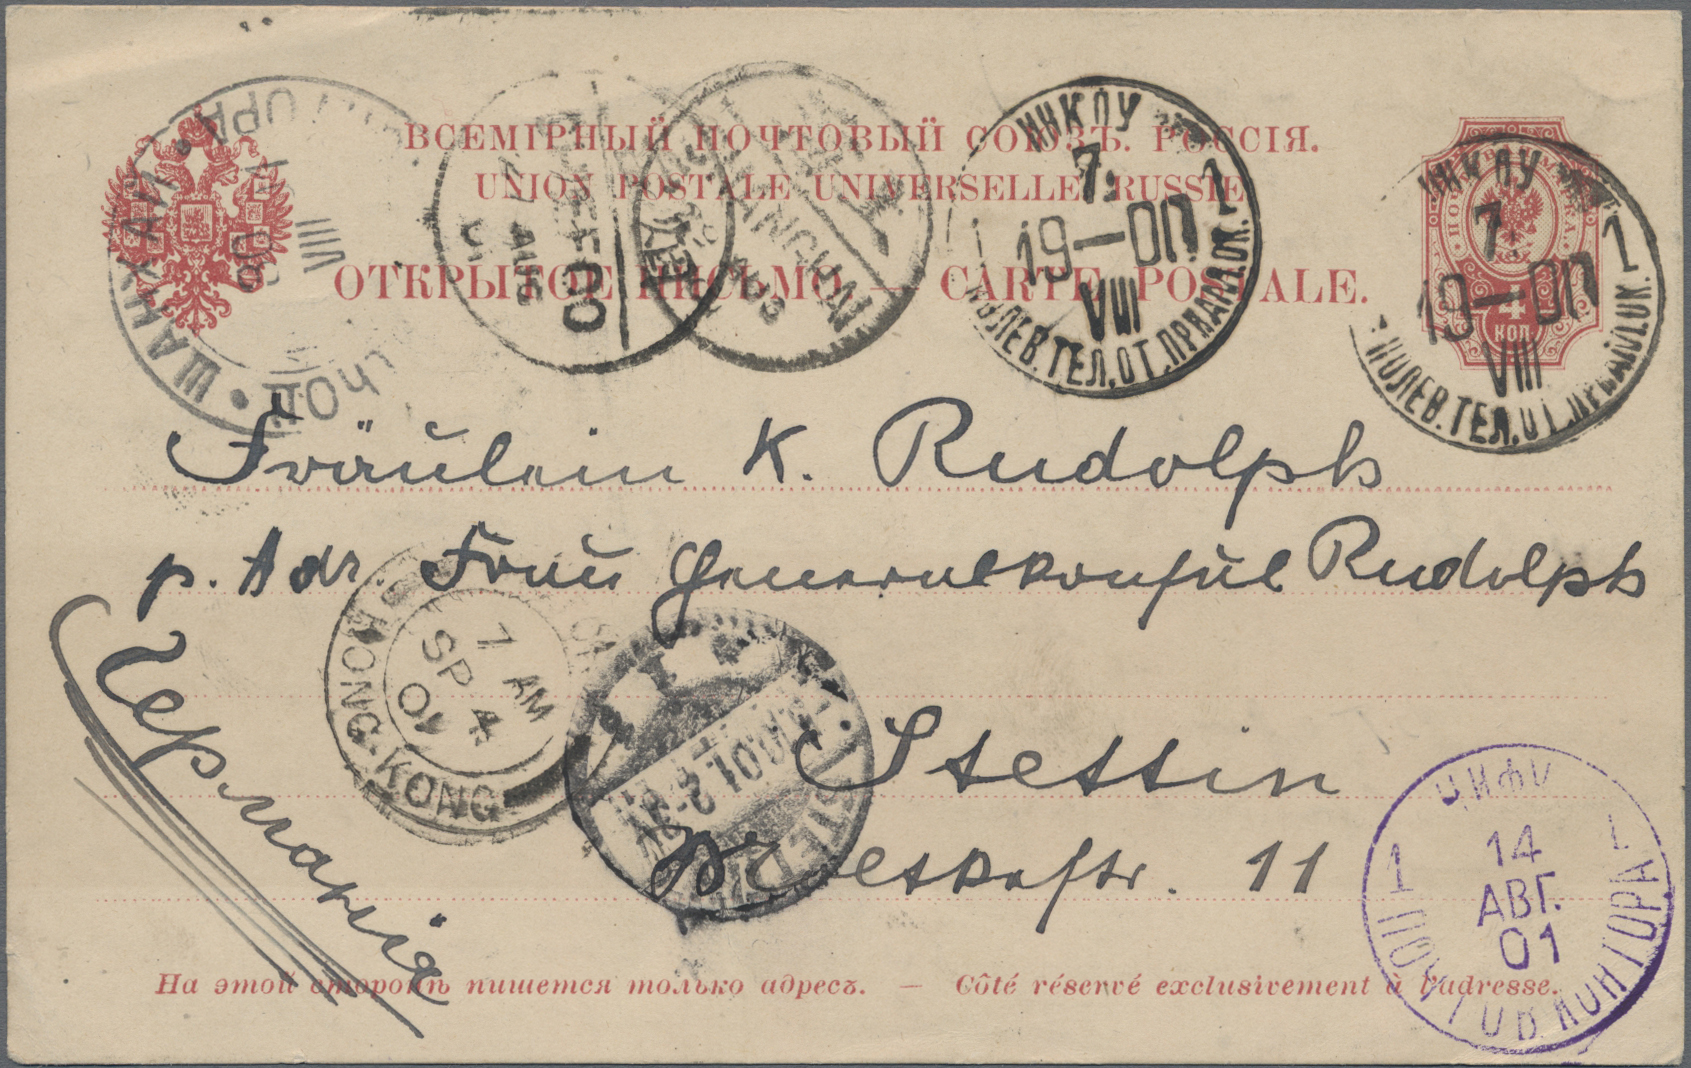 ВСЕМІРНЫЙ ПОЧТОВЫЙ СОЮЗЪ. РОССІЯ.
UNION POSTALE UNIVERSELLE. RUSSIE
ОТКРЫТОЕ ПИСЬМО — CARTE POSTALE.
4
КОП
ШАНХАЙ
VIII
7 AUG
00
ИНКОУ 1
7.
19—00
VIII
ПОЛЕВ.ТЕЛ.ОТ.ПРИАМ.ОК.
ИНКОУ 1
7.
19—00
VIII
ПОЛЕВ.ТЕЛ.ОТ.ПРИАМ.ОК.
Fräulein K. Rudolph
p. Adr. Frau Generalkonsul Rudolph
Германія
HONG-KONG
7 AM
SP 4
01
Stettin
11
ЧИФУ
1 ПОЧТОВ КОНТОРА
14
АВГ.
01
На этой сторонѣ пишется только адресъ. — Côté réservé exclusivement à l'adresse.